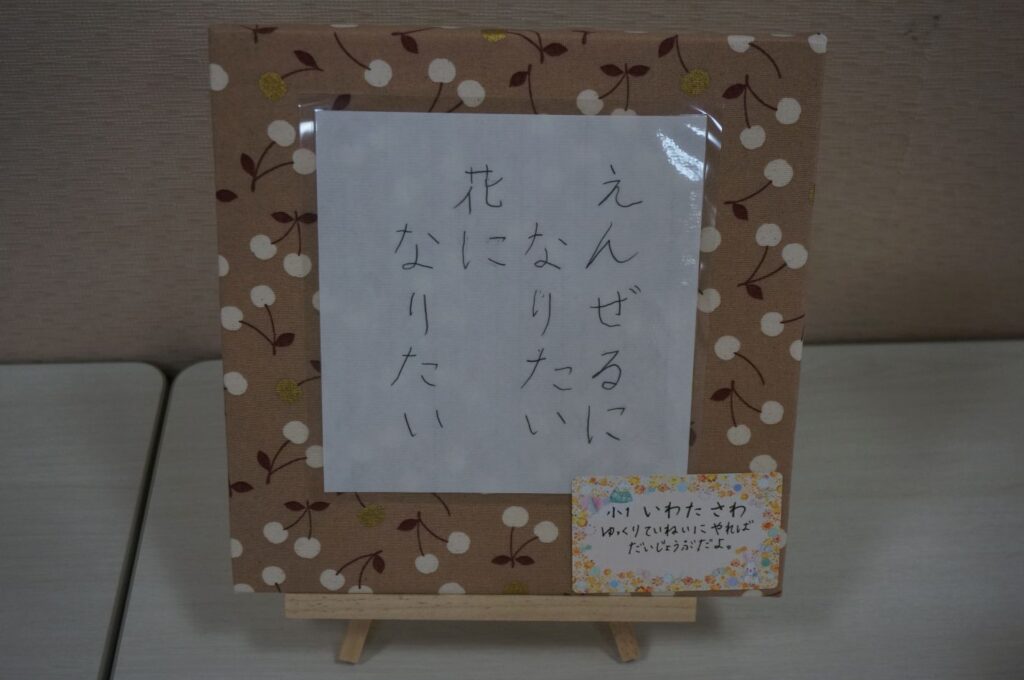 えんぜるに
なりたい
花に
なりたい
小1 いわた さわ
ゆっくりていねいにやれば
だいじょうぶだよ。